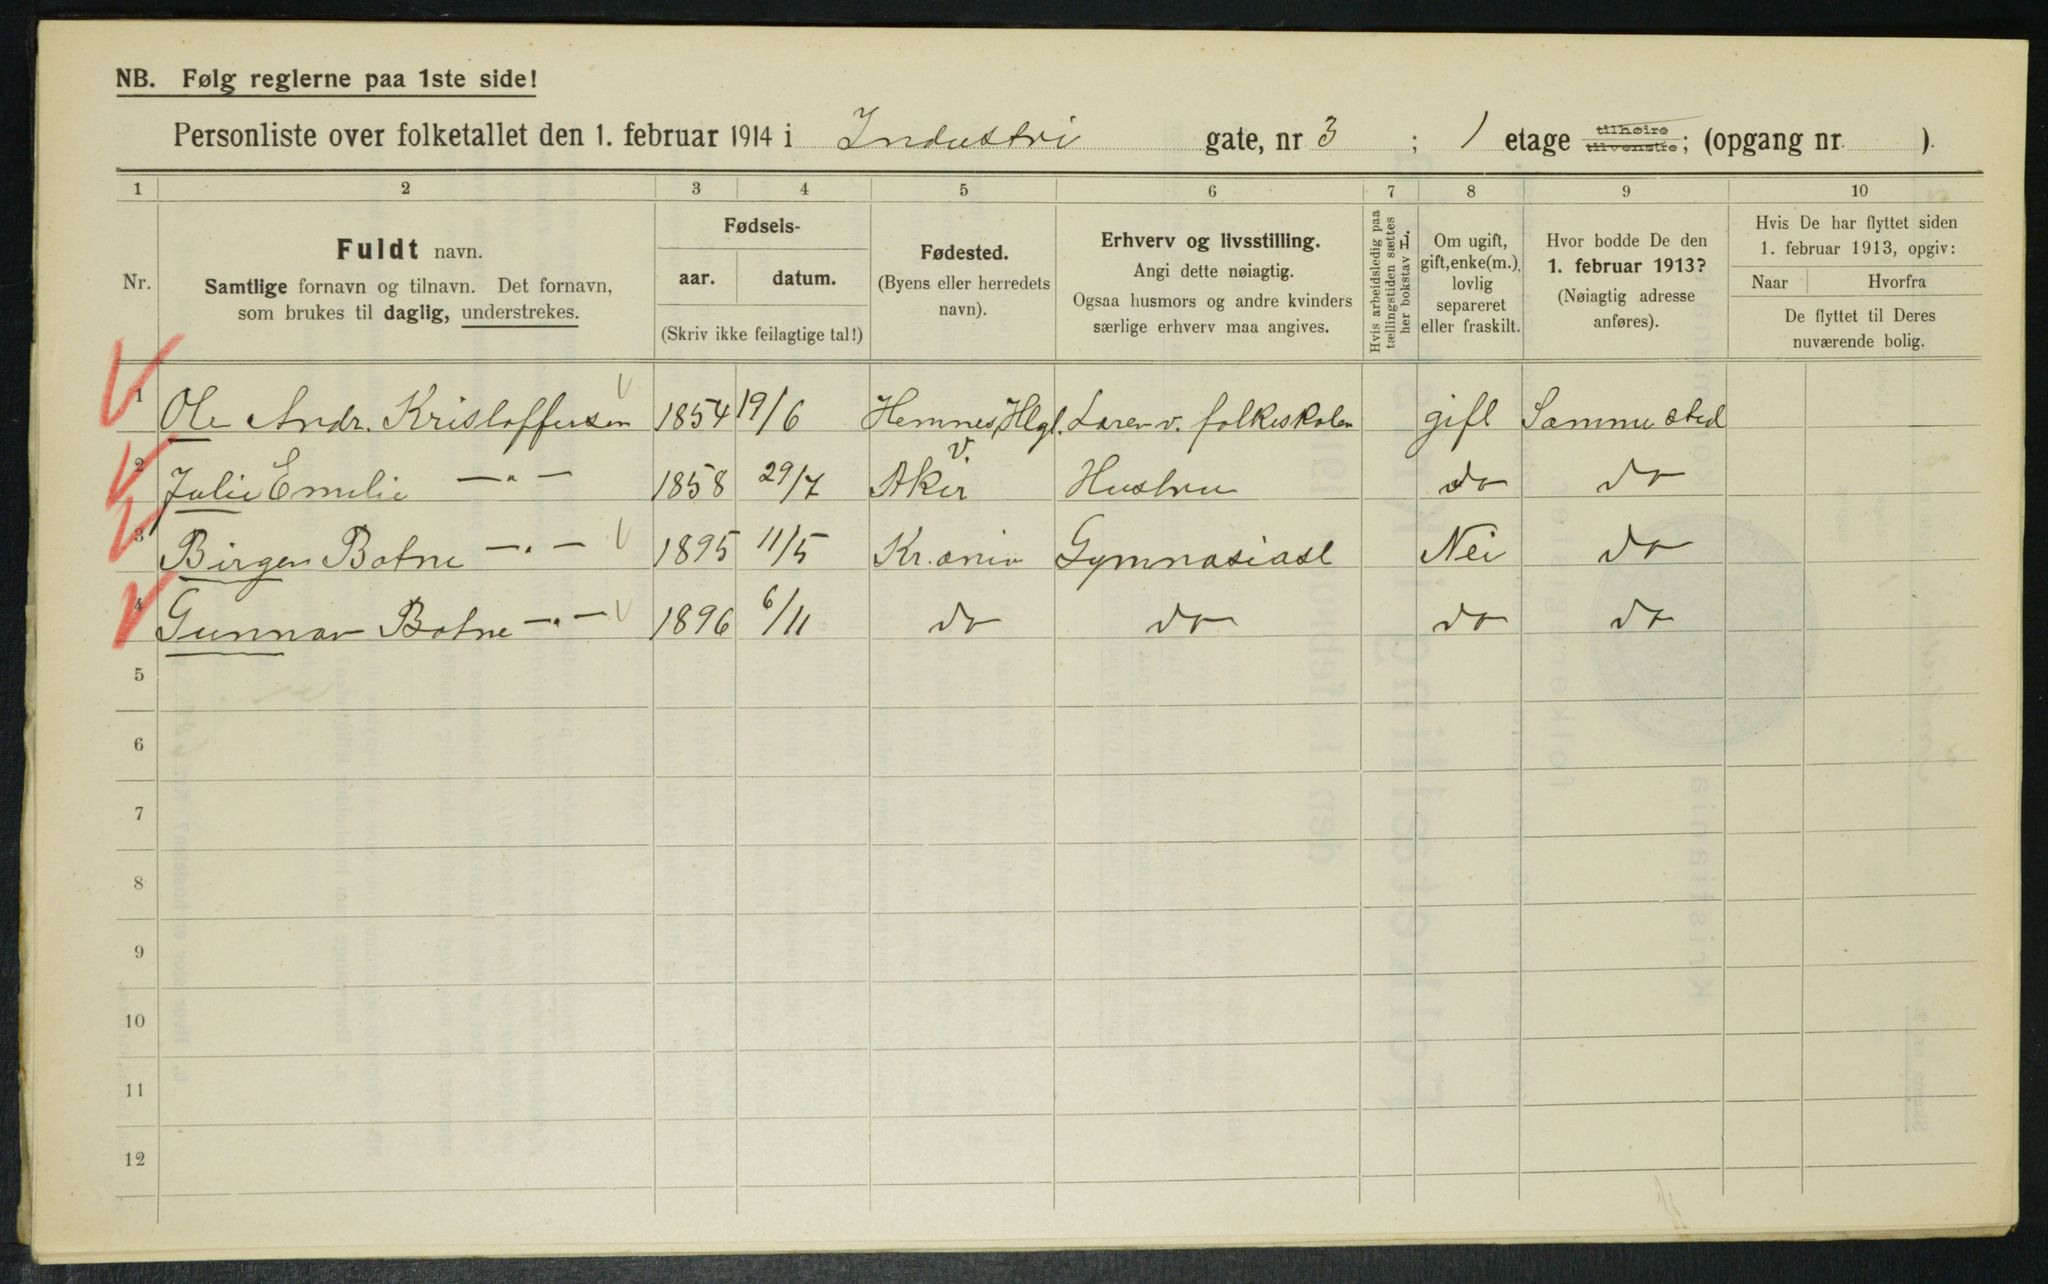 NB. Følg reglerne paa 1ste side!
Personliste over folketallet den 1. februar 1914 i Industri gate, nr 3 ; 1 etage tilhøire tilvenstre; (opgang nr. ).
1 2 3 4 5 6 7 8 9 10
Nr.
Fuldt navn.
Samtlige fornavn og tilnavn. Det fornavn,
som brukes til daglig, understrekes.
Fødsels-
aar. datum.
(Skriv ikke feilagtige tal!)
Fødested.
(Byens eller herredets
navn).
Erhverv og livsstilling.
Angi dette nøiagtig.
Ogsaa husmors og andre kvinders
særlige erhverv maa angives.
Hvis arbeidsledig paa
tællingstiden sættes
her bokstav L.
Om ugift,
gift, enke(m.),
lovlig
separeret
eller fraskilt.
Hvor bodde De den
1. februar 1913?
(Nøiagtig adresse
anføres).
Hvis De har flyttet siden
1. februar 1913, opgiv:
Naar Hvorfra
De flyttet til Deres
nuværende bolig.
1 Ole Andr. Kristoffersen 1854 19/6 Hemnes, Hlgl. Lærer v. folkeskolen gift Samme sted
2 Julie Emilie —"— 1858 29/7 Aker Hustru do do
3 Birger Botne —"— 1895 11/5 Kr.ania Gymnasiast Nei do
4 Gunnar Botne —"— 1896 6/11 do do do do
5
6
7
8
9
10
11
12